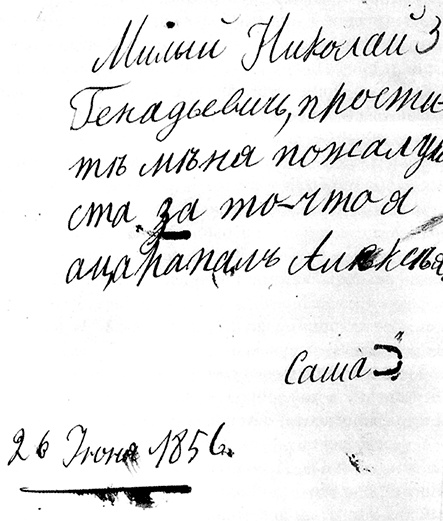 Милый Николай З
Генадьевичь, прости-
тѣ мѣня пожалуй
ста за то-что я
ацарапалъ Алѣксѣя
Саша
26 Iюня 1856.